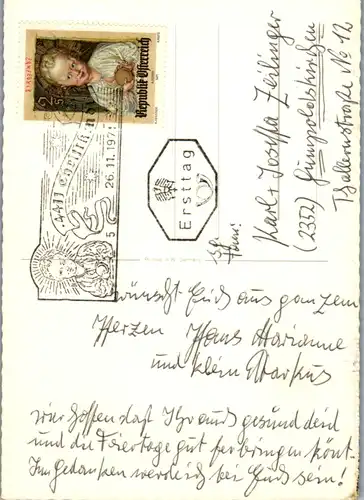 2 S
Republik Österreich
26.11.1971
Ersttag
An
Fam:
Karl + Josefa Zeilinger
(2352) Gumpoldskirchen
No 12
wünscht Euch aus ganzem
Herzen Hans Marianne
und klein Markus
wir hoffen daß Ihr auch gesund seid
und die Feiertage gut verbringen könt.
In Gedanken werde ich bei Euch sein!